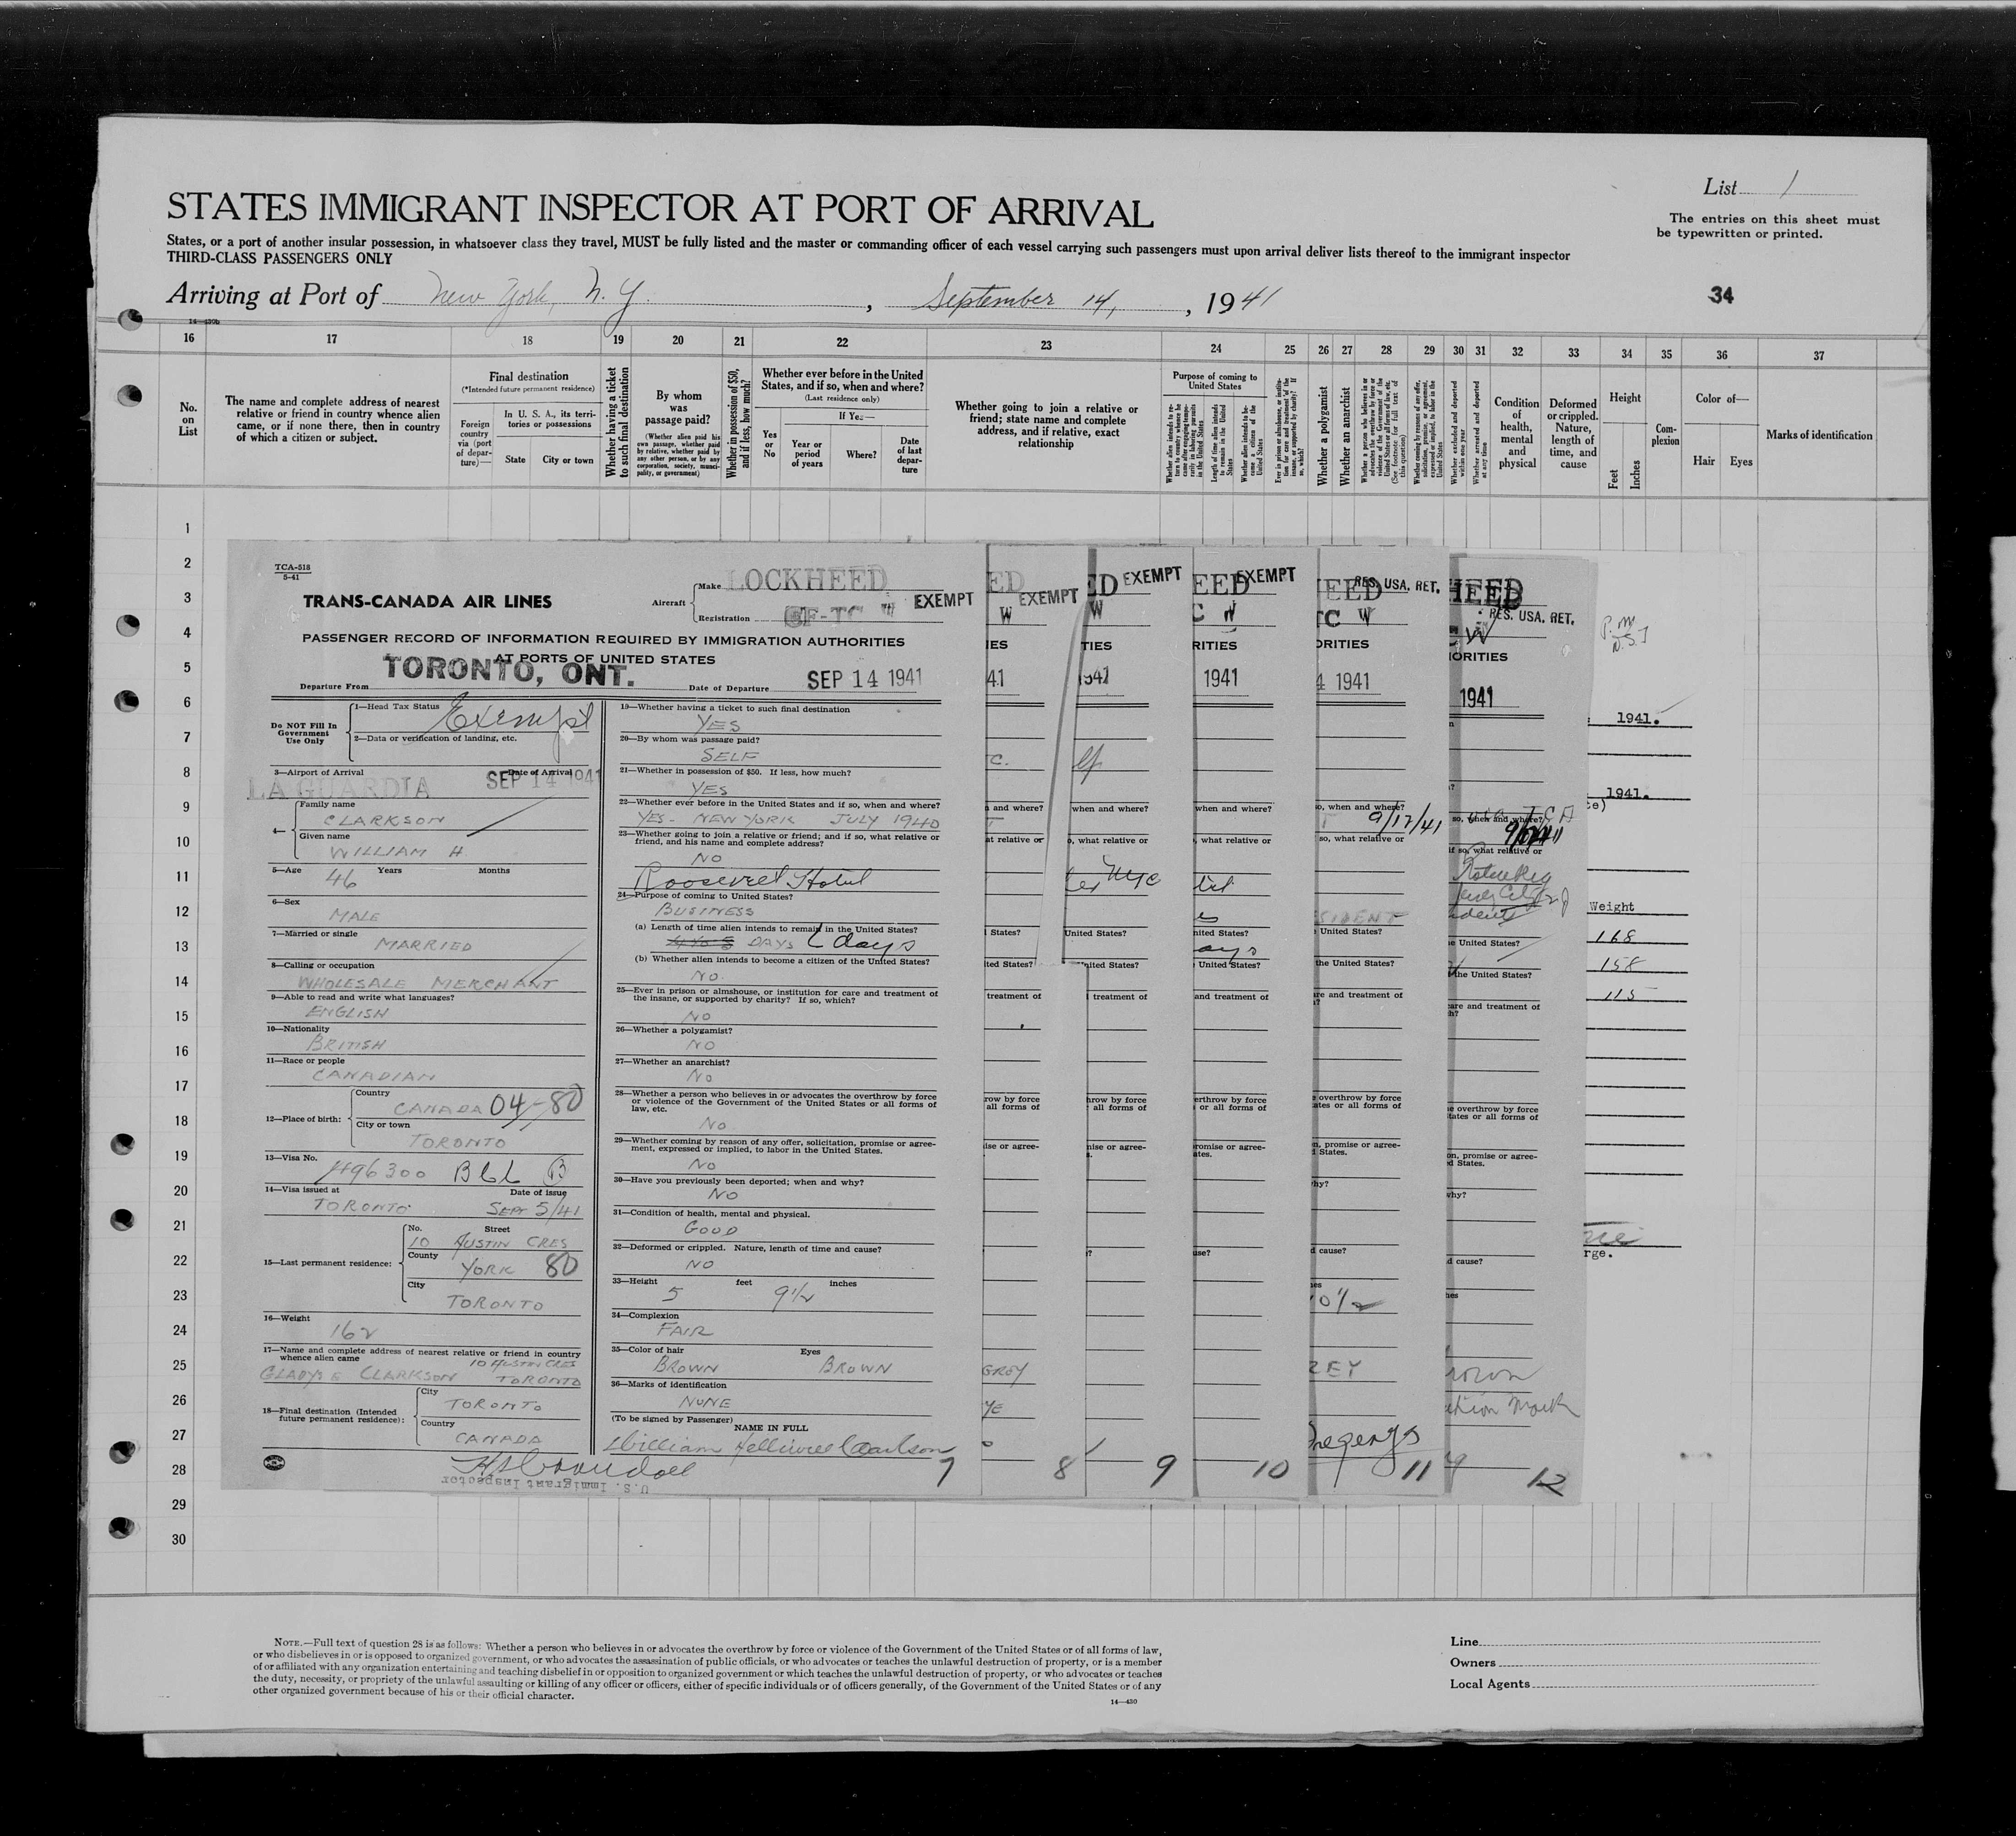 List 1
STATES IMMIGRANT INSPECTOR AT PORT OF ARRIVAL
The entries on this sheet must
be typewritten or printed.
States, or a port of another insular possession, in whatsoever class they travel, MUST be fully listed and the master or commanding officer of each vessel carrying such passengers must upon arrival deliver lists thereof to the immigrant inspector
THIRD-CLASS PASSENGERS ONLY
Arriving at Port of New York, N. Y., September 14, 1941
34
14—430b
16 17 18 19 20 21 22 23 24 25 26 27 28 29 30 31 32 33 34 35 36 37
No. on List
The name and complete address of nearest relative or friend in country whence alien came, or if none there, then in country of which a citizen or subject.
Final destination
(*Intended future permanent residence)
Foreign country via (port of departure)—
In U. S. A., its territories or possessions
State
City or town
Whether having a ticket to such final destination
By whom was passage paid?
(Whether alien paid his own passage, whether paid by relative, whether paid by any other person, or by any corporation, society, municipality, or government)
Whether in possession of $50, and if less, how much?
Whether ever before in the United States, and if so, when and where?
(Last residence only)
Yes or No
If Yes—
Year or period of years
Where?
Date of last departure
Whether going to join a relative or friend; state name and complete address, and if relative, exact relationship
Purpose of coming to United States
Whether alien intends to return to country whence he came after engaging temporarily in laboring pursuits in the United States
Length of time alien intends to remain in the United States
Whether alien intends to become a citizen of the United States
Ever in prison or almshouse, or institution for care and treatment of the insane, or supported by charity? If so, which?
Whether a polygamist
Whether an anarchist
Whether a person who believes in or advocates the overthrow by force or violence of the Government of the United States or all forms of law, etc. (See footnote for full text of this question)
Whether coming by reason of any offer, solicitation, promise, or agreement, expressed or implied, to labor in the United States
Whether excluded and deported within one year
Whether arrested and deported at any time
Condition of health, mental and physical
Deformed or crippled. Nature, length of time, and cause
Height
Feet
Inches
Complexion
Color of—
Hair
Eyes
Marks of identification
1
2
3
4
5
6
7
8
9
10
11
12
13
14
15
16
17
18
19
20
21
22
23
24
25
26
27
28
29
30
TCA-518
5-41
TRANS-CANADA AIR LINES
Aircraft
Make LOCKHEED
Registration CF-TC W
EXEMPT
PASSENGER RECORD OF INFORMATION REQUIRED BY IMMIGRATION AUTHORITIES
AT PORTS OF UNITED STATES
Departure From TORONTO, ONT.
Date of Departure SEP 14 1941
Do NOT Fill In
Government
Use Only
1—Head Tax Status Exempt
2—Data or verification of landing, etc.
3—Airport of Arrival Date of Arrival
LA GUARDIA SEP 14 1941
4—
Family name
CLARKSON
Given name
WILLIAM H
5—Age Years Months
46
6—Sex
MALE
7—Married or single
MARRIED
8—Calling or occupation
WHOLESALE MERCHANT
9—Able to read and write what languages?
ENGLISH
10—Nationality
BRITISH
11—Race or people
CANADIAN
12—Place of birth:
Country
CANADA 04-80
City or town
TORONTO
13—Visa No.
496300 B
14—Visa issued at Date of issue
TORONTO SEPT 5/41
15—Last permanent residence:
No. Street
10 AUSTIN CRES
County
YORK 80
City
TORONTO
16—Weight
162
17—Name and complete address of nearest relative or friend in country
whence alien came 10 AUSTIN CRES
GLADYS E CLARKSON TORONTO
18—Final destination (Intended
future permanent residence):
City
TORONTO
Country
CANADA
U.S. Immigrant Inspector
19—Whether having a ticket to such final destination
YES
20—By whom was passage paid?
SELF
21—Whether in possession of $50. If less, how much?
YES
22—Whether ever before in the United States and if so, when and where?
YES- NEW YORK JULY 1940
23—Whether going to join a relative or friend; and if so, what relative or
friend, and his name and complete address?
NO
Roosevelt Hotel
24—Purpose of coming to United States?
BUSINESS
(a) Length of time alien intends to remain in the United States?
DAYS days
(b) Whether alien intends to become a citizen of the United States?
NO.
25—Ever in prison or almshouse, or institution for care and treatment of
the insane, or supported by charity? If so, which?
NO
26—Whether a polygamist?
NO
27—Whether an anarchist?
NO
28—Whether a person who believes in or advocates the overthrow by force
or violence of the Government of the United States or all forms of
law, etc.
NO
29—Whether coming by reason of any offer, solicitation, promise or agree-
ment, expressed or implied, to labor in the United States.
NO
30—Have you previously been deported; when and why?
NO
31—Condition of health, mental and physical.
GOOD
32—Deformed or crippled. Nature, length of time and cause?
NO
33—Height feet inches
5 9½
34—Complexion
FAIR
35—Color of hair Eyes
BROWN BROWN
36—Marks of identification
NONE
(To be signed by Passenger)
NAME IN FULL
William Helliwell Clarkson
7
8
9
10
11
12
ED EXEMPT
ED EXEMPT
EED EXEMPT
HEED RES. USA, RET.
HEED RES. USA, RET.
W
W
C W
TC W
CW
IES
TIES
RITIES
ORITIES
IORITIES
41
1941
1941
4 1941
1941
1941.
1941.
9/17/41
SIDENT
Weight
168
158
115
GREY
REY
rown
Gregory
rge.
NOTE.—Full text of question 28 is as follows: Whether a person who believes in or advocates the overthrow by force or violence of the Government of the United States or of all forms of law,
or who disbelieves in or is opposed to organized government, or who advocates the assassination of public officials, or who advocates or teaches the unlawful destruction of property, or is a member
of or affiliated with any organization entertaining and teaching disbelief in or opposition to organized government or which teaches the unlawful destruction of property, or who advocates or teaches
the duty, necessity, or propriety of the unlawful assaulting or killing of any officer or officers, either of specific individuals or of officers generally, of the Government of the United States or of any
other organized government because of his or their official character.
14—430
Line
Owners
Local Agents